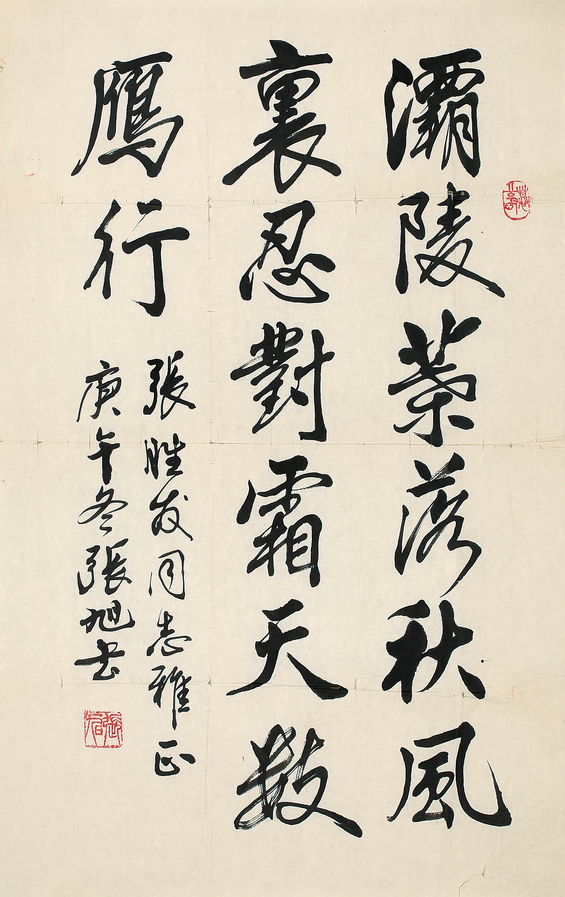 灞陵葉落秋風
裏忍對霜天数
鴈行
張胜友同志雅正
庚午冬張旭书